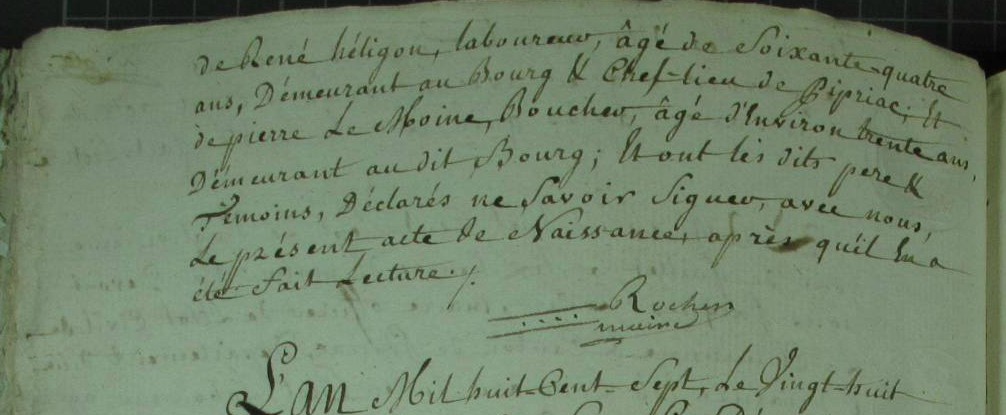 de René héligon, laboureur, âgé de Soixante-quatre
ans, Démeurant au Bourg & Chef-lieu de Pipriac; Et
de pierre Le Moine, Boucher, âgé d'Environ trente ans,
Démeurant au dit Bourg; Et ont les dits pere &
Témoins, Déclarés ne Savoir Signer, avec nous,
Le présent acte de Naissance, après qu'il En a
été fait Lecture./.
Rocher
maire
L'an Mil huit-Cent-Sept, Le Vingt-huit